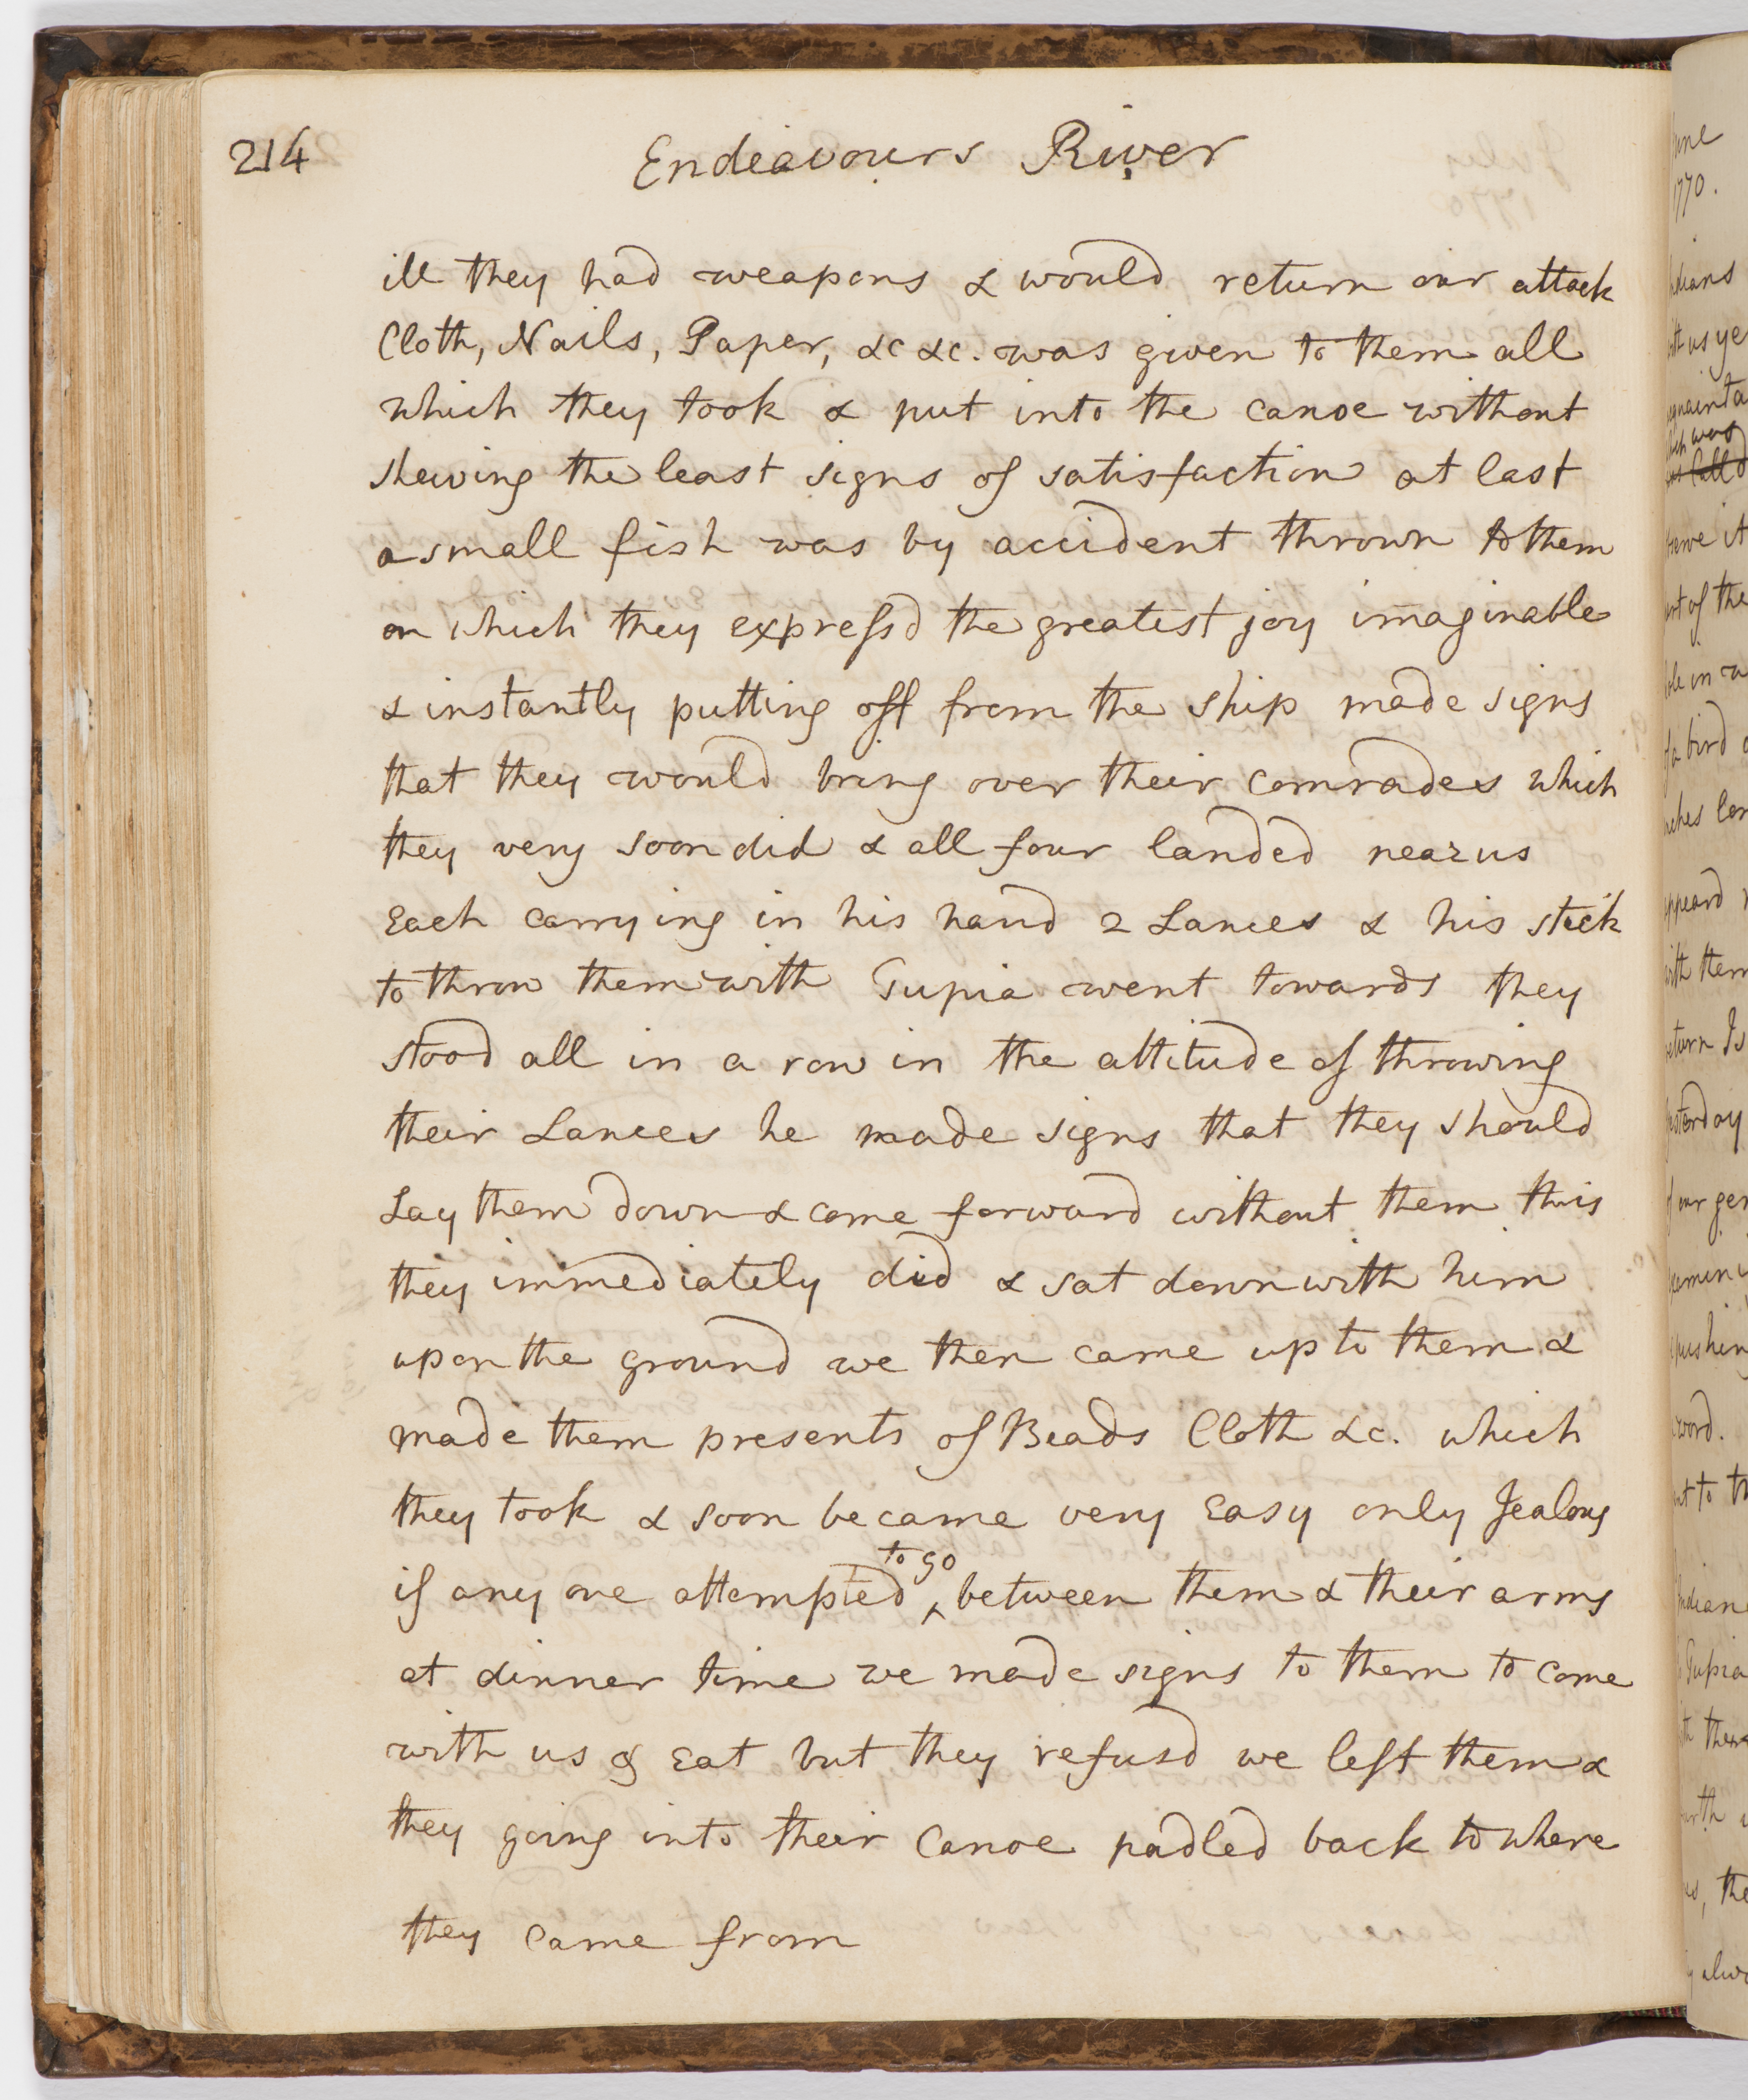 214
Endeavours River
ill they had weapons & would return our attack
Cloth, Nails, Paper, &c &c. was given to them all
which they took & put into the canoe without
shewing the least signs of satisfaction at last
a small fish was by accident thrown to them
on which they expressd the greatest joy imaginable
& instantly putting off from the ship made signs
that they would bring over their comrades which
they very soon did & all four landed near us
Each carrying in his hand 2 Lances & his stick
to throw them with Tupia went towards they
stood all in a row in the attitude of throwing
their Lances he made signs that they should
Lay them down & come forward without them this
they immediately did & sat down with him
upon the ground we then came up to them &
made them presents of Beads Cloth &c. which
they took & soon became very Easy only Jealous
if any one attempted to go between them & their arms
at dinner time we made signs to them to come
with us & Eat but they refusd we left them &
they going into their Canoe padled back to where
they came from
1770.